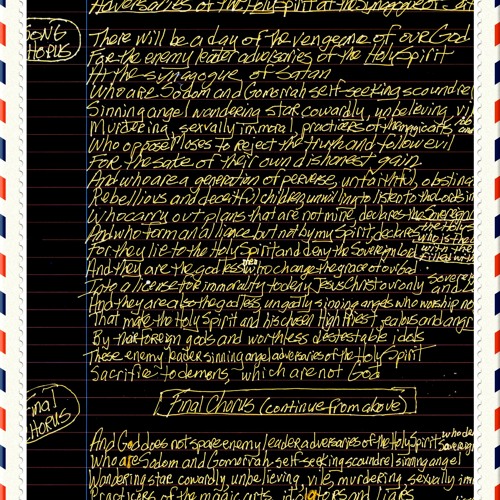 Adversaries of the Holy Spirit at the synagogue of
SONG CHORUS
There will be a day of the vengeance of our God
For the enemy leader adversaries of the Holy Spirit
At the synagogue of Satan
Who are Sodom and Gomorrah self-seeking scoundrel
Sinning angel wandering star cowardly, unbelieving, vile
Murdering, sexually immoral, practicers of the magic arts,
Who oppose Moses to reject the truth and follow evil
For the sake of their own dishonest gain
And who are a generation of perverse, unfaithful, obstinate
Rebellious and deceitful children unwilling to listen to the
Who carry out plans that are not mine, declares the Sovereign
And who form an alliance but not by my Spirit declares
For they lie to the Holy Spirit and deny the Sovereign
And they are the godless who change the grace of our God
Into a license for immorality to deny Jesus Christ our only Sovereign and
And they are also the godless, ungodly sinning angels who worship
That make the Holy Spirit and his chosen High Priest jealous and angry
By their foreign gods and worthless detestable idols
These enemy leader sinning angel adversaries of the Holy Spirit
Sacrifice to demons, which are not God
Final CHORUS
Final Chorus (continue from above)
And God does not spare enemy leader adversaries of the Holy Spirit
Who are Sodom and Gomorrah self-seeking scoundrel sinning angel
Wandering star cowardly, unbelieving, vile, murdering, sexually
Practicers of the magic arts, idolators and liars